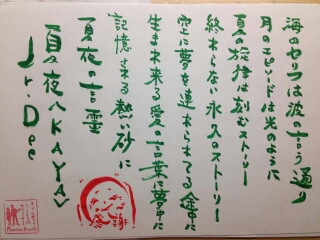 海のセリフは波の言う通り
月のエピソードは光のように
夏の旋律は刻むストーリー
終わらない永久のストーリー
空に夢を連れられてる途中に
生まれ来る愛の言葉に夢中に
記憶される熱い砂に
夏夜の言霊
夏夜〈KAYA〉
Jr.Dee
感謝